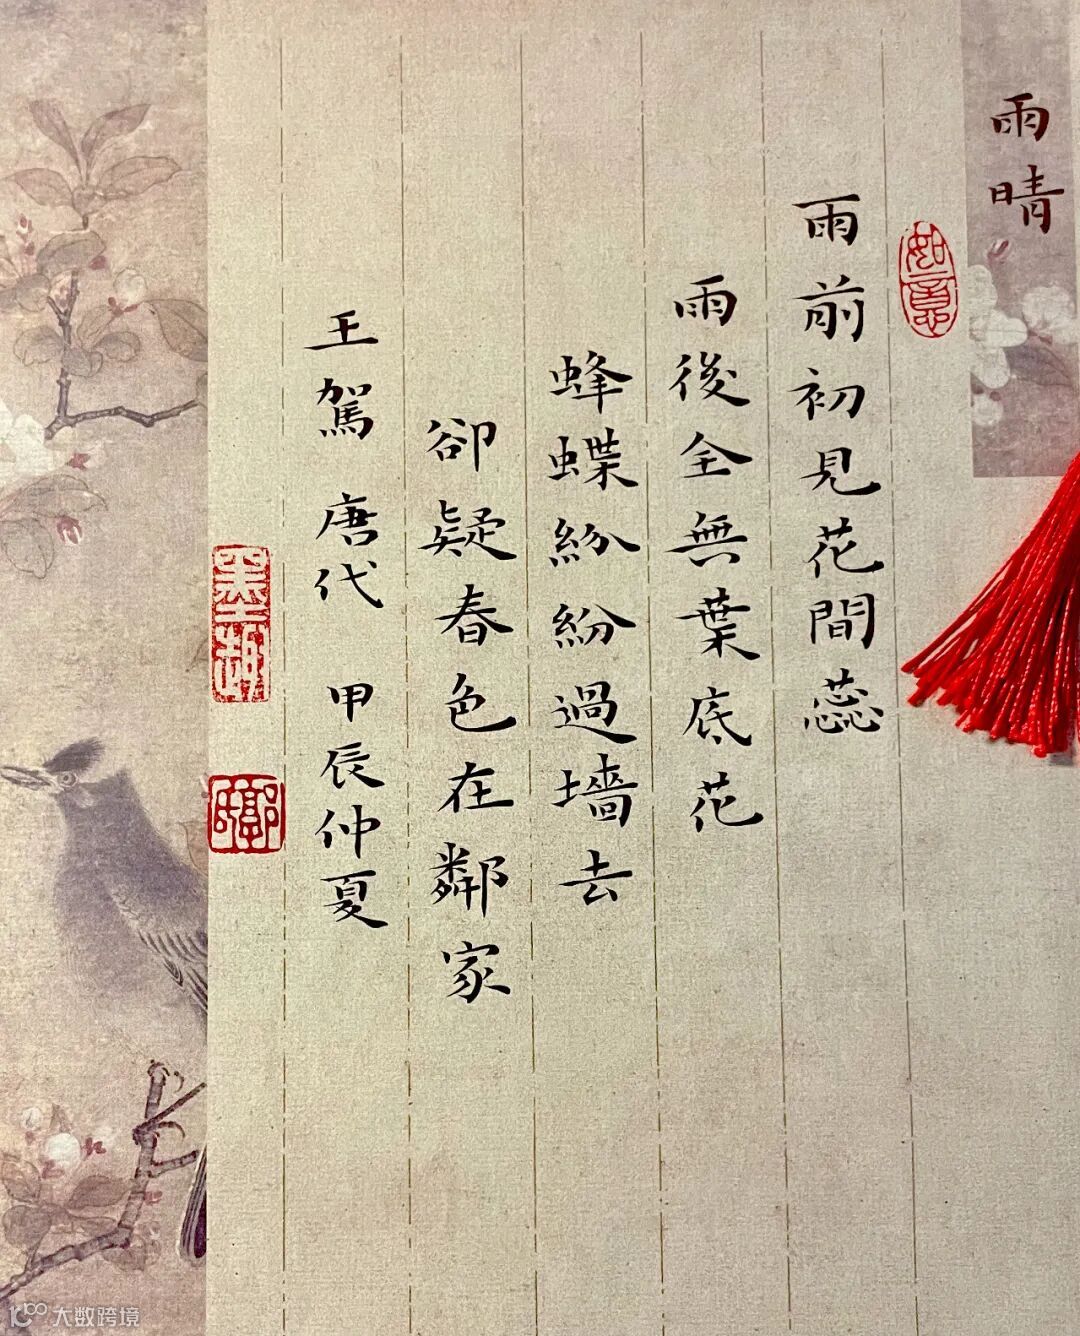 雨晴
如意
雨前初見花間蕊
雨後全無葉底花
蜂蝶紛紛過墻去
卻疑春色在鄰家
王駕 唐代 甲辰仲夏
墨趣
大数跨境